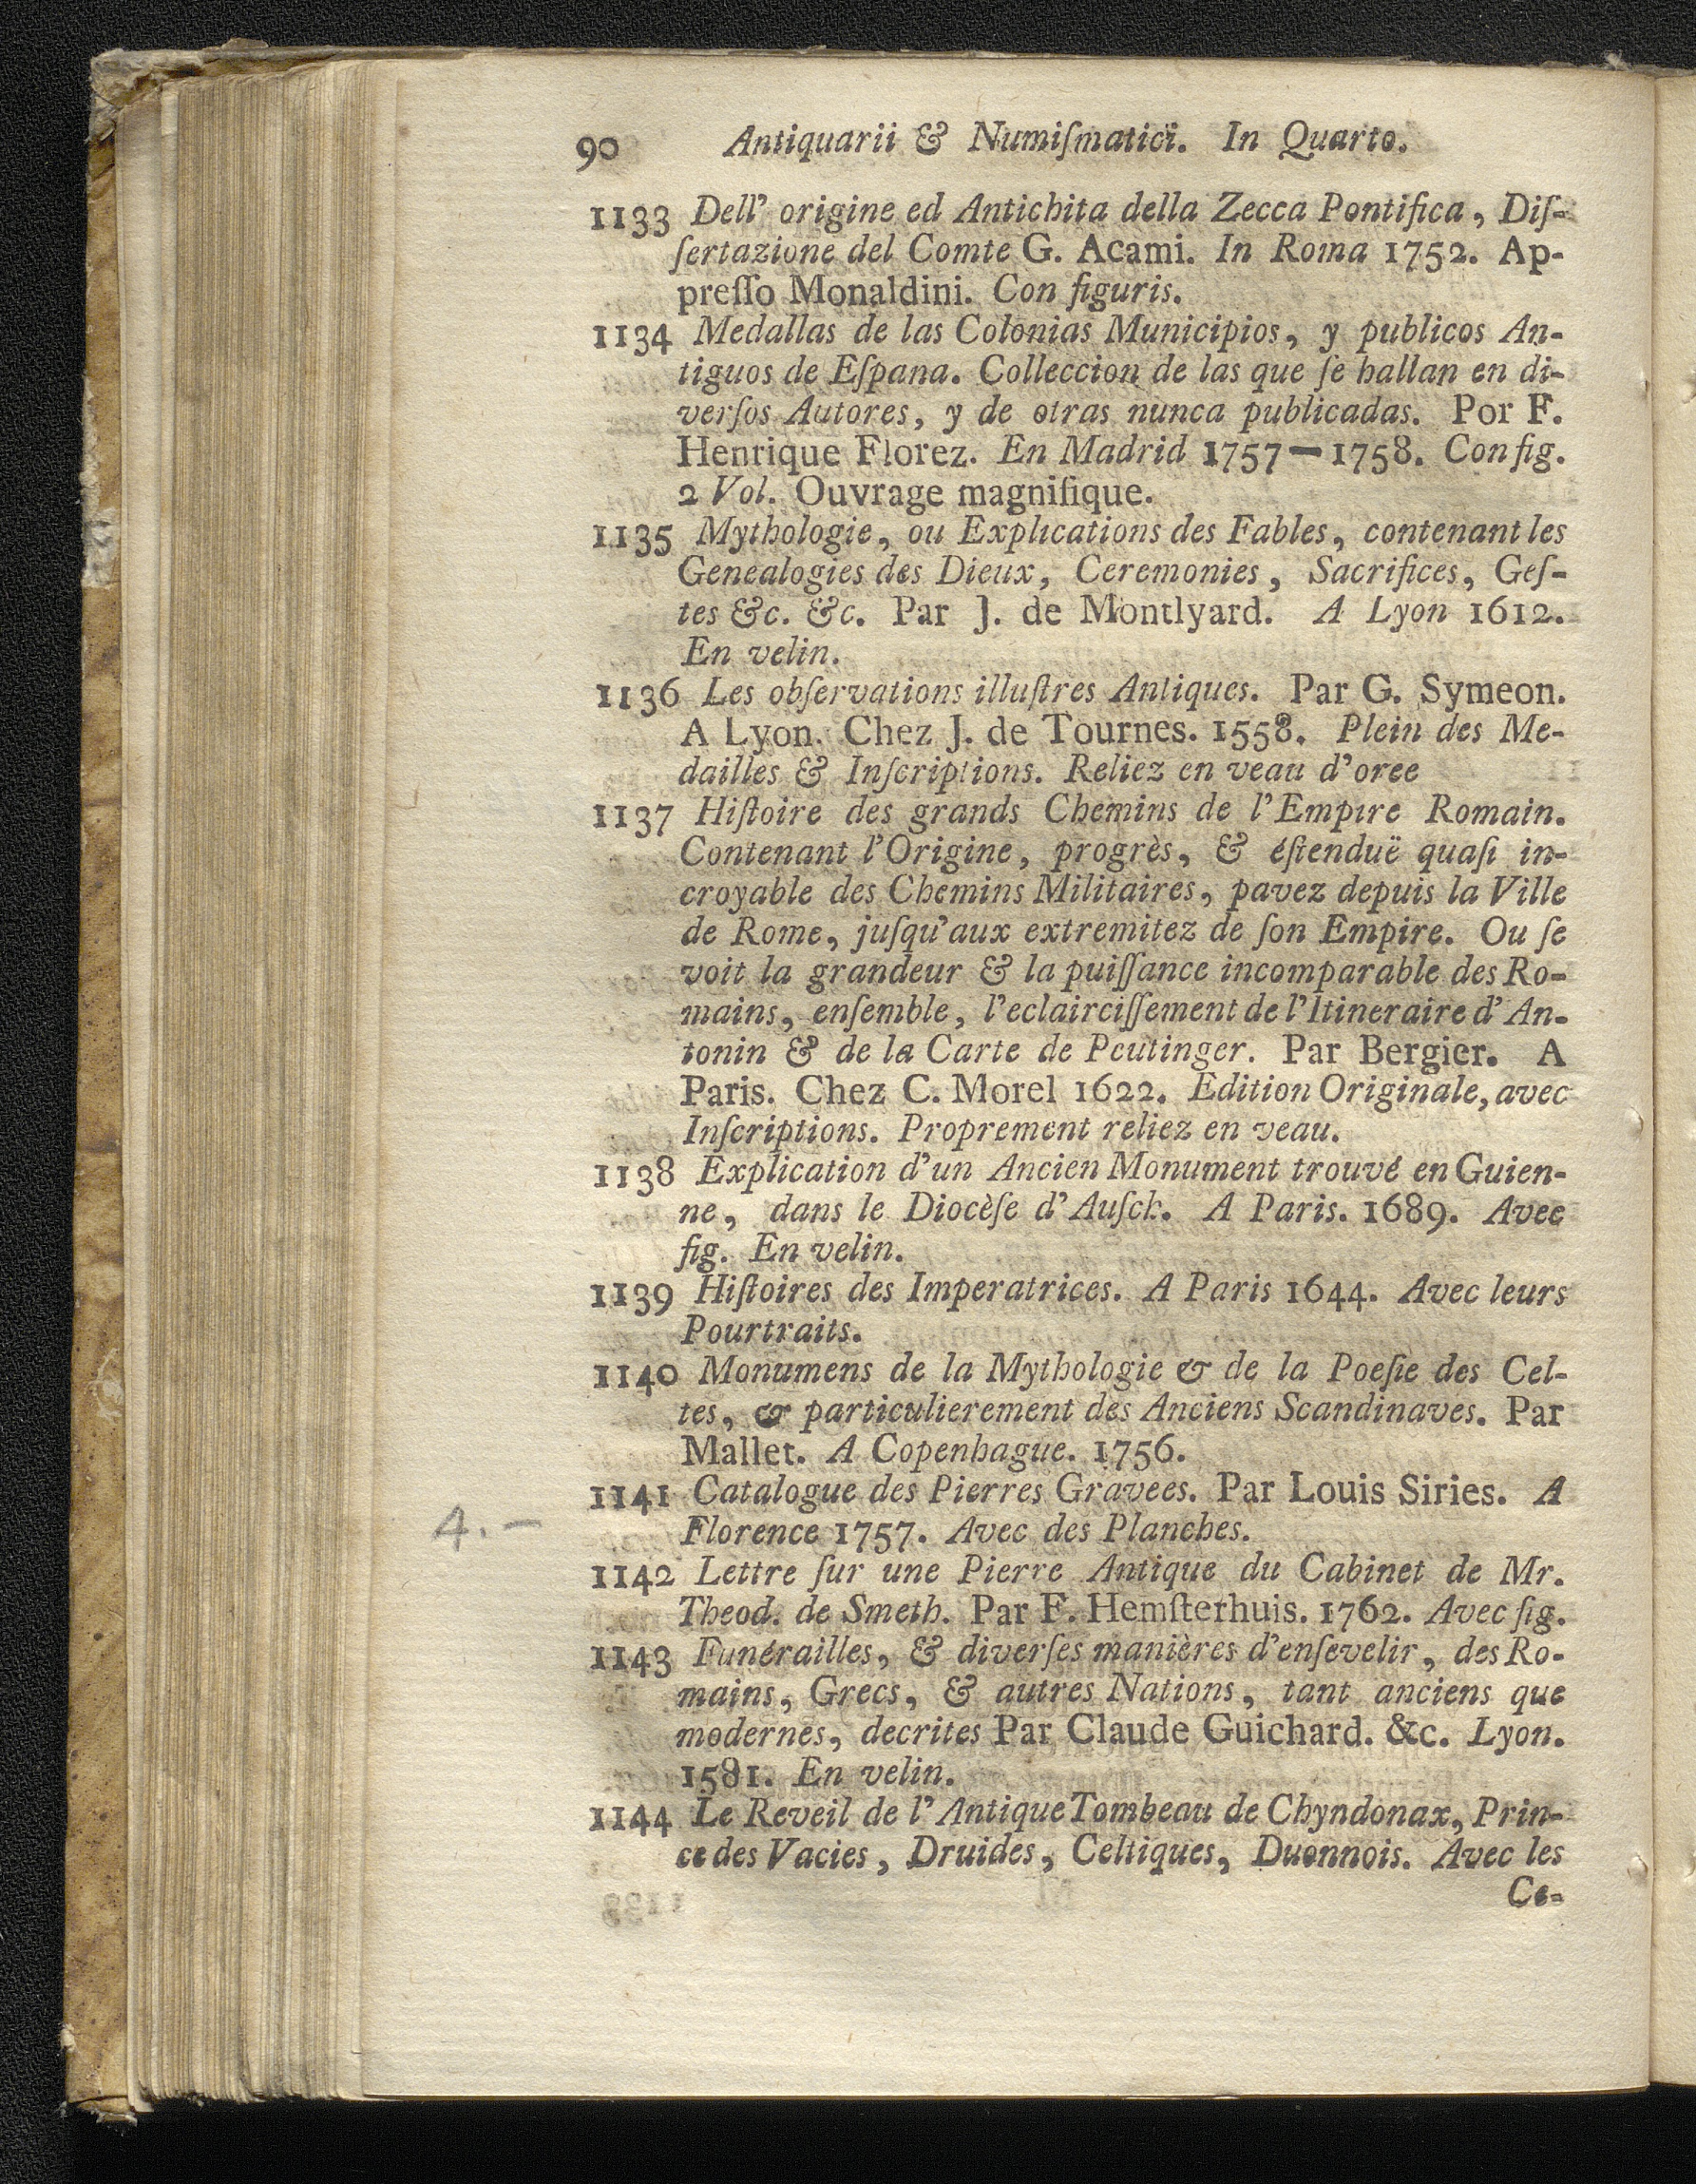 90 Antiquarii & Numiſmatici. In Quarto.
1133 Dell' origine ed Antichita della Zecca Pontifica, Diſ-
ſertazione del Comte G. Acami. In Roma 1752. Ap-
preſſo Monaldini. Con figuris.
1134 Medallas de las Colonias Municipios, y publicos An-
tiguos de Eſpana. Colleccion de las que ſe hallan en di-
verſos Autores, y de otras nunca publicadas. Por F.
Henrique Florez. En Madrid 1757—1758. Con fig.
2 Vol. Ouvrage magnifique.
1135 Mythologie, ou Explications des Fables, contenant les
Genealogies des Dieux, Ceremonies, Sacrifices, Geſ-
tes &c. &c. Par J. de Montlyard. A Lyon 1612.
En velin.
1136 Les obſervations illuſtres Antiques. Par G. Symeon.
A Lyon. Chez J. de Tournes. 1558. Plein des Me-
dailles & Inſcriptions. Reliez en veau d'oree
1137 Hiſtoire des grands Chemins de l'Empire Romain.
Contenant l'Origine, progrès, & éſtenduë quaſi in-
croyable des Chemins Militaires, pavez depuis la Ville
de Rome, juſqu'aux extremitez de ſon Empire. Ou ſe
voit la grandeur & la puiſſance incomparable des Ro-
mains, enſemble, l'eclairciſſement de l'Itineraire d'An-
tonin & de la Carte de Peutinger. Par Bergier. A
Paris. Chez C. Morel 1622. Edition Originale, avec
Inſcriptions. Proprement reliez en veau.
1138 Explication d'un Ancien Monument trouvé en Guien-
ne, dans le Diocèſe d'Auſch. A Paris. 1689. Avec
fig. En velin.
1139 Hiſtoires des Imperatrices. A Paris 1644. Avec leurs
Pourtraits.
1140 Monumens de la Mythologie & de la Poeſie des Cel-
tes, & particulierement des Anciens Scandinaves. Par
Mallet. A Copenhague. 1756.
1141 Catalogue des Pierres Gravees. Par Louis Siries. A
4.— Florence 1757. Avec des Planches.
1142 Lettre ſur une Pierre Antique du Cabinet de Mr.
Theod. de Smeth. Par F. Hemſterhuis. 1762. Avec fig.
1143 Funérailles, & diverſes manières d'enſevelir, des Ro-
mains, Grecs, & autres Nations, tant anciens que
modernes, decrites Par Claude Guichard. &c. Lyon.
1581. En velin.
1144 Le Reveil de l'Antique Tombeau de Chyndonax, Prin-
ce des Vacies, Druides, Celtiques, Duonnois. Avec les
Ce-